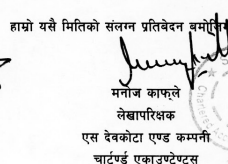 हाम्रो यसै मितिको संलग्न प्रतिवेदन बमोजिम
मनोज काफ्ले
लेखापरिक्षक
एस देवकोटा एण्ड कम्पनी
चार्टर्ड एकाउण्टेण्टस